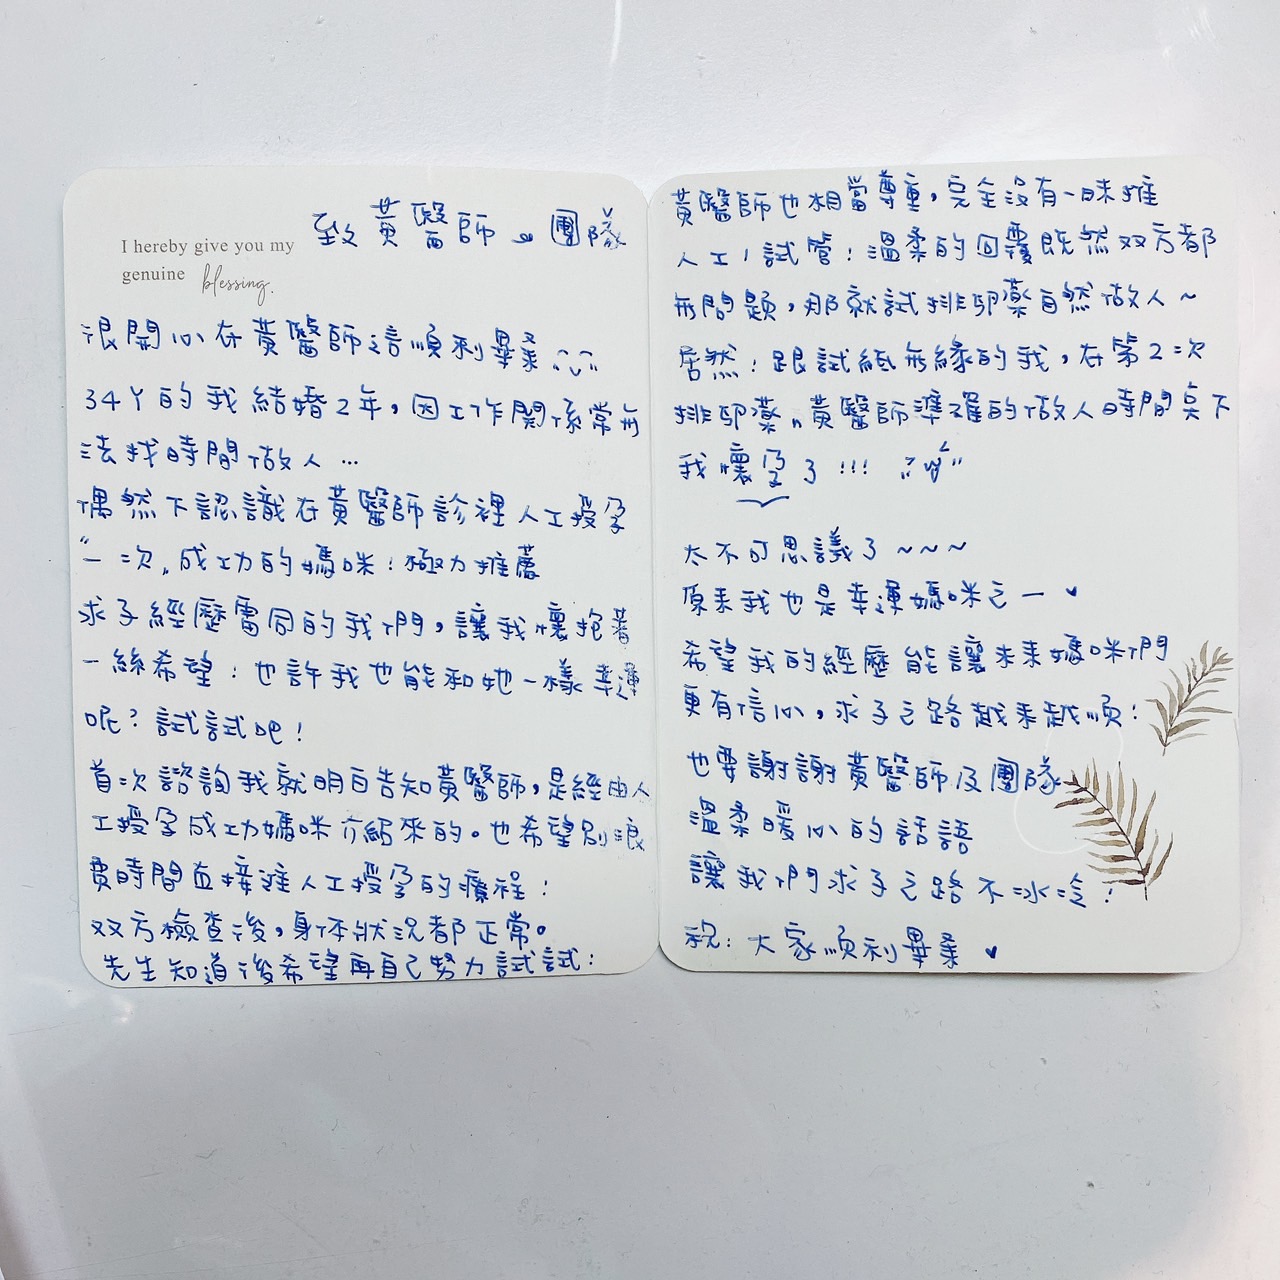 致黃醫師 & 團隊
I hereby give you my
genuine blessing.
很開心在黃醫師這順利畢業
34Y的我結婚2年，因工作關係常無
法找時間做人…
偶然下認識在黃醫師診裡人工授孕
“一次”成功的媽咪！極力推薦
求子經歷雷同的我們，讓我懷抱著
一絲希望！也許我也能和她一樣幸運
呢？試試吧！
首次諮詢我就明白告知黃醫師，是經由人
工授孕成功媽咪介紹來的。也希望別浪
費時間直接進人工授孕的療程！
双方檢查後，身体狀況都正常。
先生知道後希望再自己努力試試！
黃醫師也相當尊重，完全沒有一昧推
人工/試管！溫柔的回覆既然双方都
無問題，那就試排卵藥自然做人～
居然！跟試紙無緣的我，在第2次
排卵藥&黃醫師準確的做人時間点下
我懷孕了!!!
太不可思議了～～～
原來我也是幸運媽咪之一♥
希望我的經歷能讓未來媽咪們
更有信心，求子之路越來越順！
也要謝謝黃醫師及團隊
溫柔暖心的話語
讓我們求子之路不冰冷！
祝：大家順利畢業♥